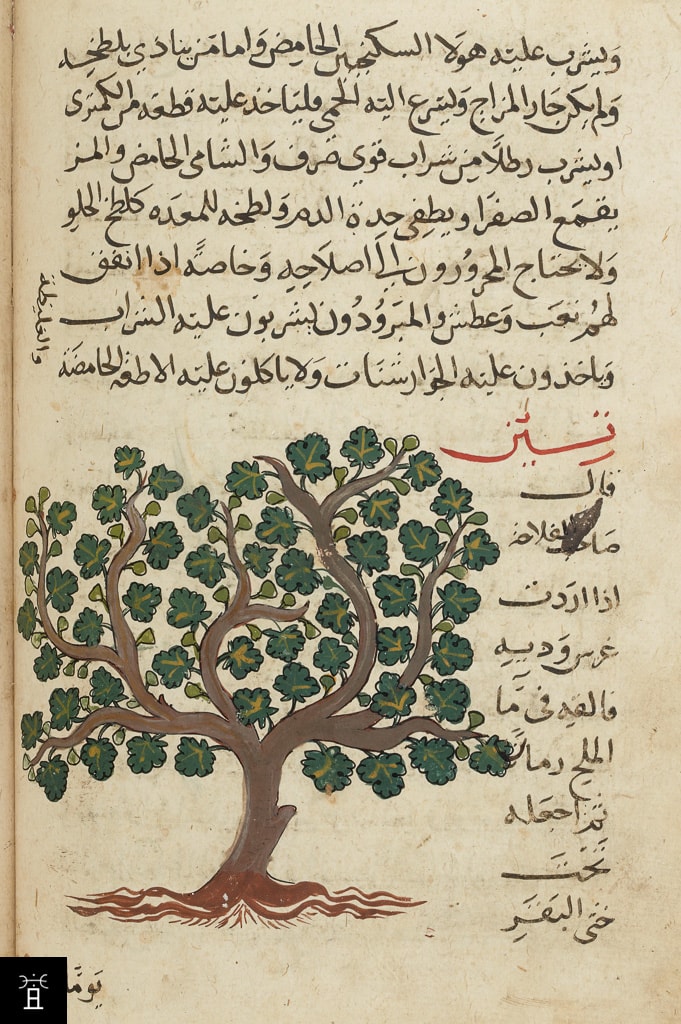 ويشرب عليه هولا السكنجبين الحامض واما من يتاذي بلطخه
ولم يكن حار المزاج ولتسرع اليه الحمى فلياخذ عليه قطعه من الكمثرى
او ليشرب رطلا من شراب قوي صرف والشامى الحامض والمز
يقمع الصفرا ويطفى حدة الدم ولطخه للمعده كلطخ الحلو
ولا يحتاج المحرورون إلى اصلاحه وخاصة اذا اتفق
لهم تعب وعطش والمبرودون ليشربون عليه الشراب
وياخذون عليه الجوارشنات ولا ياكلون عليه الاطعمه الحامضة
والغليظة
تين
قال
صاحب الفلاحه
اذا اردت
غرس وديه
فالقه فى ما
الملح
ثم اجعله
تحت
خثى البقر
يوما